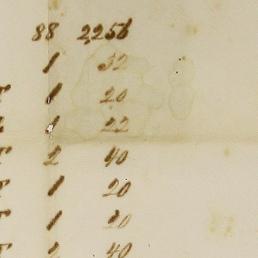 88 2,256
1 32
1 20
1 22
2 40
1 20
1 20
2 40